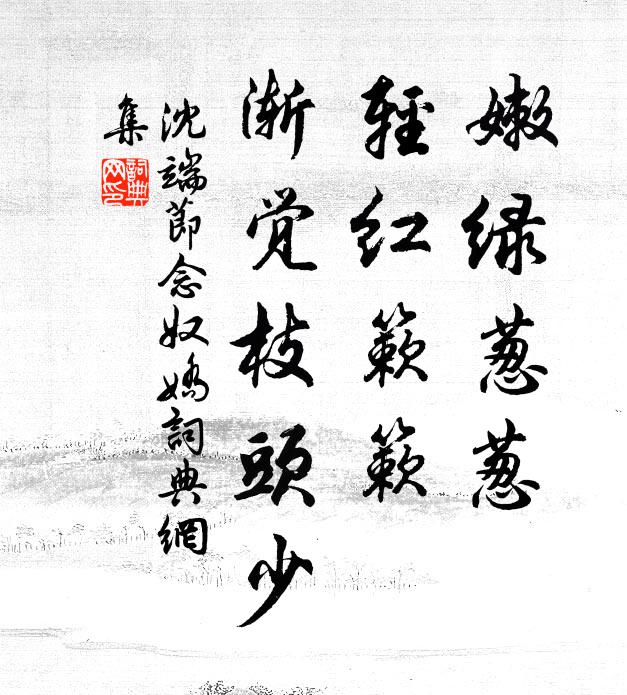 嫩绿葱葱
轻红簌簌
渐觉枝头少
沈端节念奴娇詞典網
集
詞典
网印